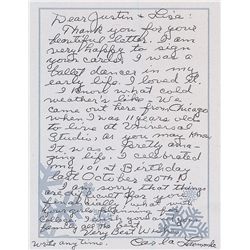 Dear Justin & Lisa:
Thank you for your
beautiful letter. I am
very happy to sign
your cards. I was a
ballet dancer in my
early life. I loved it.
I know what cold
weather's like - We
came out here from Chicago
when I was 11 years old
to live at Universal
Studios as you may know.
It was a pretty ama-
zing life. I celebrated
my 101st Birthday
last October 20th
I am sorry that things
are difficult for you
financially, what with
you and
family all the
Very Best Wishes
Write anytime. Carla Laemmle